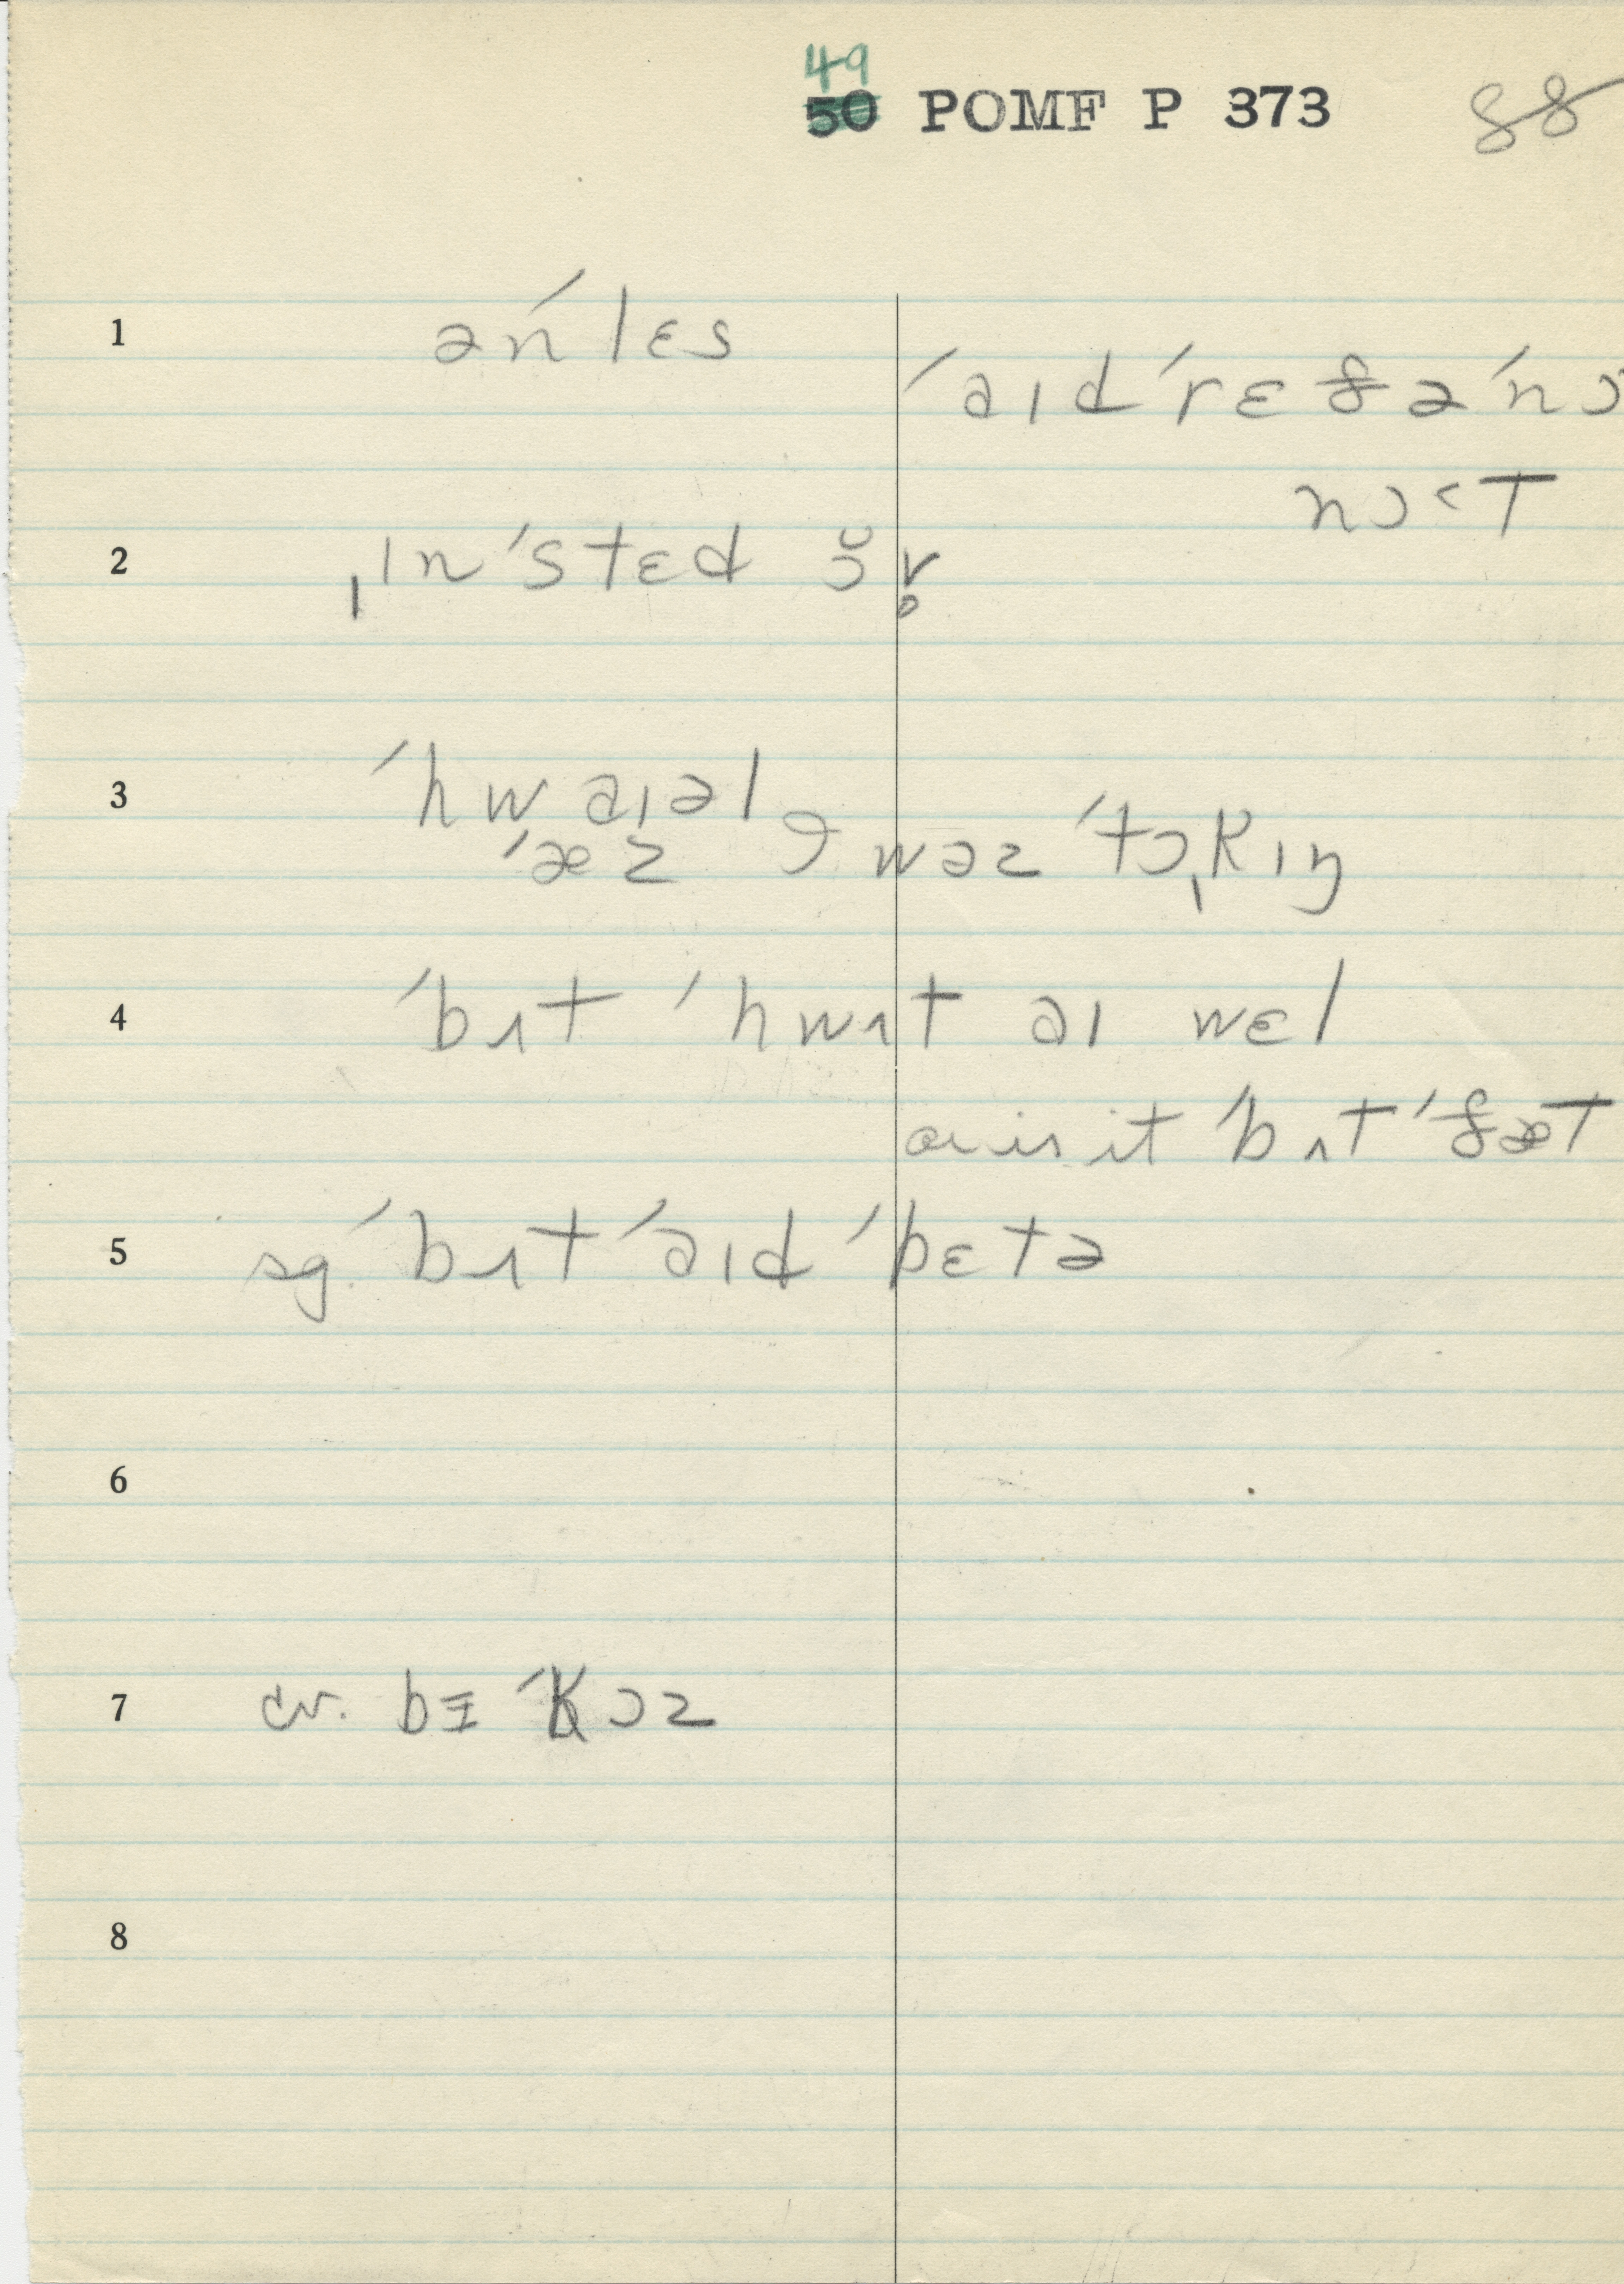 49
50 POMF P 373 88
1 ən ́lɛs
ˈaɪdˈrɛfəˈnɔ
nɔ˂T
2 ˌɪnˈstɛd ɔ̆v̥
3 ˈhwaɪəl
ˈæz 9 wəz ˈtɔ̩kɪŋ
4 ˈbʌt ˈhwʌt aɪ wɛl
or is it ˈbʌT ˈfæT
5 sg. ˈbʌt ˈaɪd ˈbɛtə
6
7 cv. bɪ ˈkɔz
8